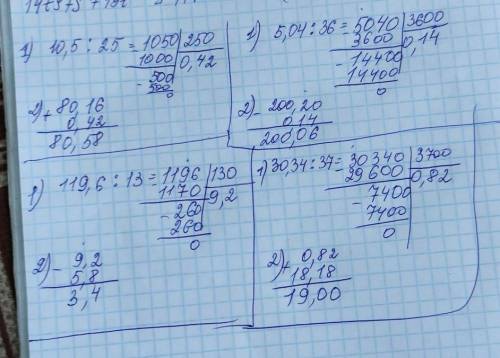 1) 10,5 : 25 = 1050 | 250
1000 | 0,42
- 500
500
0
2) + 80,16
0,42
80,58
1) 5,04 : 36 = 5040 | 3600
3600 | 0,14
- 14400
14400
0
2) - 200,20
0,14
200,06
1) 119,6 : 13 = 1196 | 130
1170 | 9,2
- 260
260
0
2) - 9,2
5,8
3,4
1) 30,34 : 37 = 30340 | 3700
29600 | 0,82
- 7400
7400
0
2) + 0,82
18,18
19,00